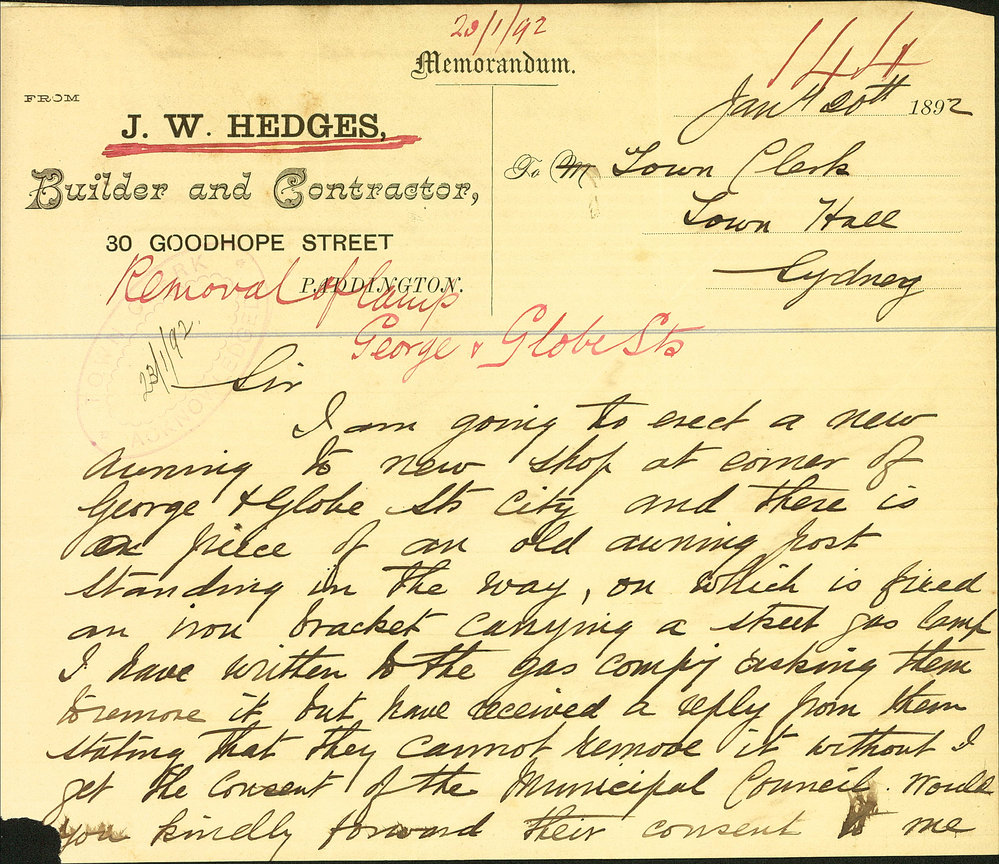 23/1/92
144
Memorandum.
Jany 20th 1892
FROM
J. W. HEDGES,
Builder and Contractor,
30 GOODHOPE STREET
PADDINGTON.
To M Town Clerk
Town Hall
Sydney
Removal of lamp
George & Globe Sts
TOWN CLERK
ACKNOWLEDGED
23/1/92.
Sir
I am going to erect a new
awning to new shop at corner of
George & Globe Sts City and there is
a piece of an old awning post
standing in the way, on which is fixed
an iron bracket carrying a street gas lamp
I have written to the gas compy asking them
to remove it but have received a reply from them
stating that they cannot remove it without I
get the consent of the Municipal Council. Would
you kindly forward their consent to me